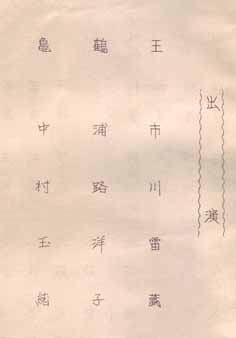 出演
王　市川雷蔵
鶴　浦路洋子
亀　中村玉緒